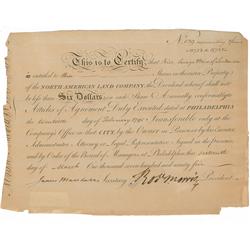 This is to Certify, that
is entitled to
Shares in the entire Property
of the NORTH AMERICAN LAND COMPANY, the Dividend whereof shall not
be less than Six Dollars on each Share Annually, conformably to
Articles of Agreement Duly Executed dated at PHILADELPHIA
the twentieth day of February 1795 Transferable only at the
Company's Office in that CITY, by the Owner in Person or by his Executor
Administrator Attorney or Legal Representative Signed in the presence
and by Order of the Board of Managers at Philadelphia this sixteenth
day of March One thousand seven hundred and ninety five
James Marshall Secretary Rob Morris President